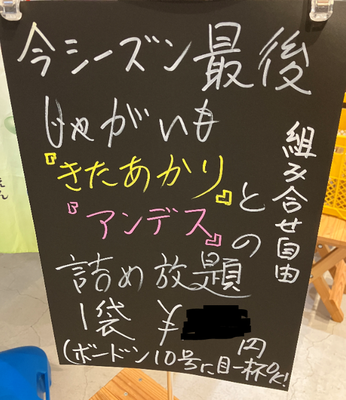 今シーズン最後
じゃがいも
『きたあかり』と
『アンデス』の
組み合せ自由
詰め放題
1袋 ¥ 円
(ボードン10号に目一杯OK!